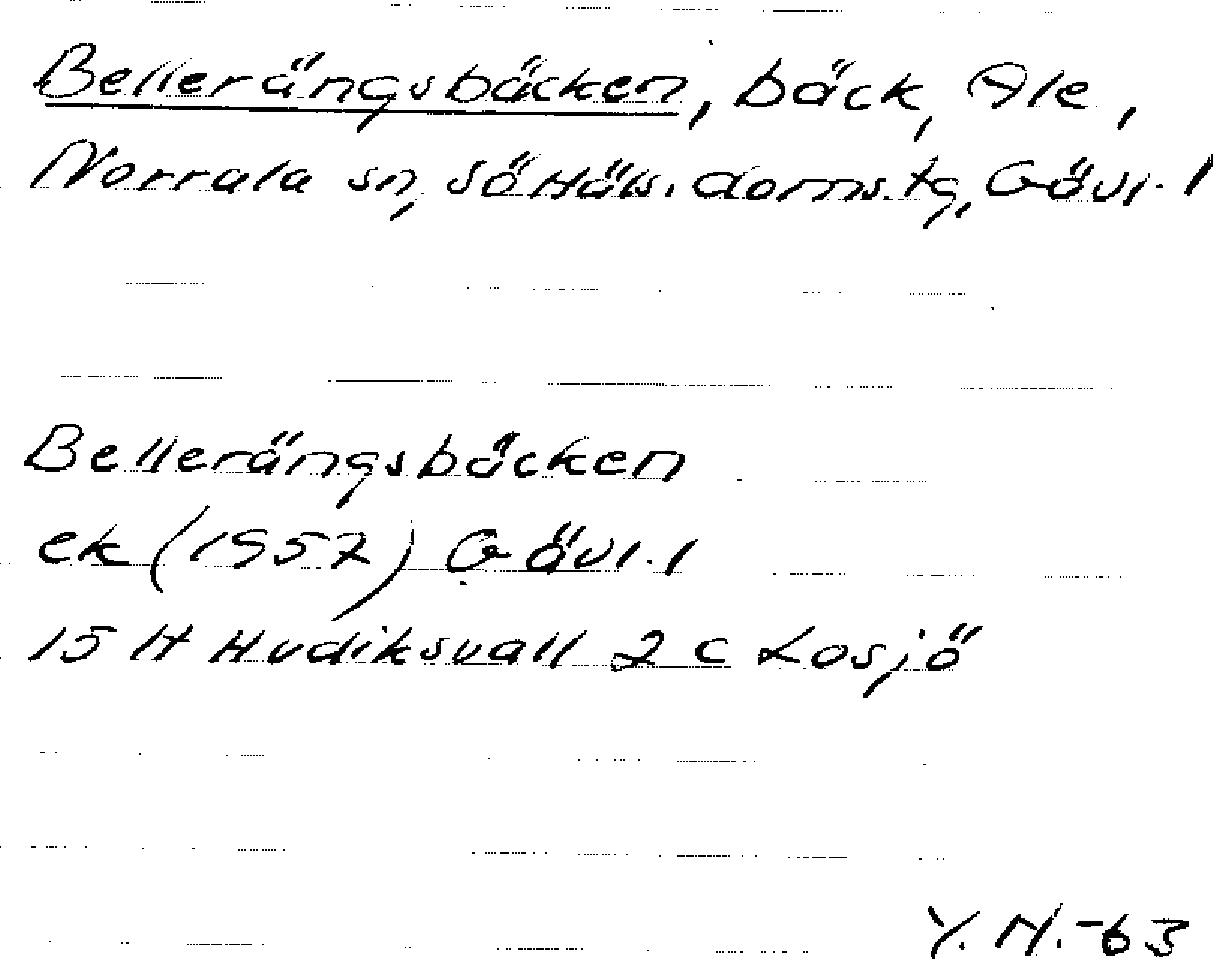 Bellerängsbäcken, bäck, Ale,
Norrala sn, Sö Häls. doms.tg, Gävl. l
Bellerängsbäcken
ek (1957) Gävl. l
15 H Hudiksvall 2 c Losjö
Y. N. -63